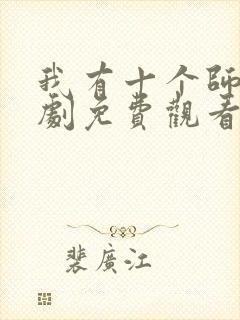 我有十个師
劇免費觀看
裴廣江